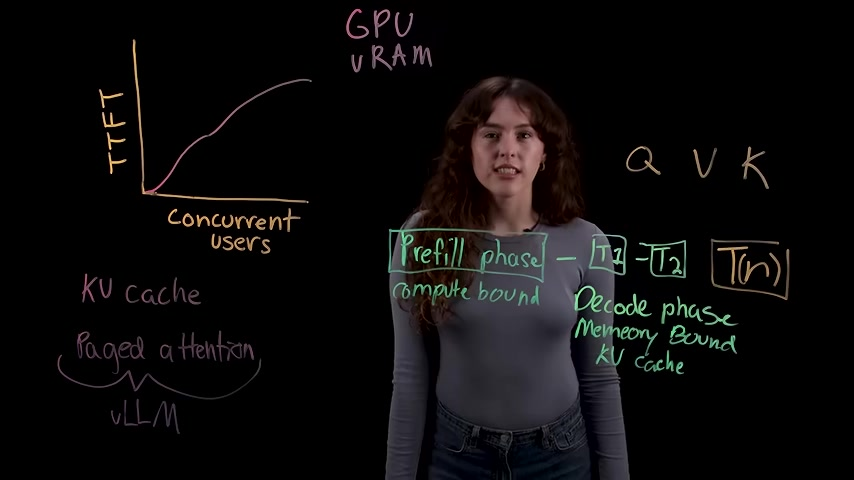 GPU
vRAM
TTFT
concurrent
users
KV cache
Paged attention
vLLM
Q V K
Prefill phase - T1 - T2 T(n)
compute bound
Decode phase
Memeory Bound
KV cache